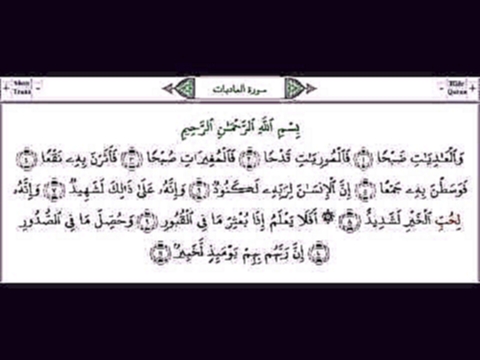 Show Trans
سورة العاديات
Hide Quran
بِسْمِ ٱللَّهِ ٱلرَّحْمَـٰنِ ٱلرَّحِيمِ
وَٱلْعَـٰدِيَـٰتِ ضَبْحًا فَٱلْمُورِيَـٰتِ قَدْحًا فَٱلْمُغِيرَٰتِ صُبْحًا فَأَثَرْنَ بِهِۦ نَقْعًا
فَوَسَطْنَ بِهِۦ جَمْعًا إِنَّ ٱلْإِنسَـٰنَ لِرَبِّهِۦ لَكَنُودٌ وَإِنَّهُۥ عَلَىٰ ذَٰلِكَ لَشَهِيدٌ وَإِنَّهُۥ
لِحُبِّ ٱلْخَيْرِ لَشَدِيدٌ ۞ أَفَلَا يَعْلَمُ إِذَا بُعْثِرَ مَا فِى ٱلْقُبُورِ وَحُصِّلَ مَا فِى ٱلصُّدُورِ
إِنَّ رَبَّهُم بِهِمْ يَوْمَئِذٍ لَّخَبِيرٌۢ